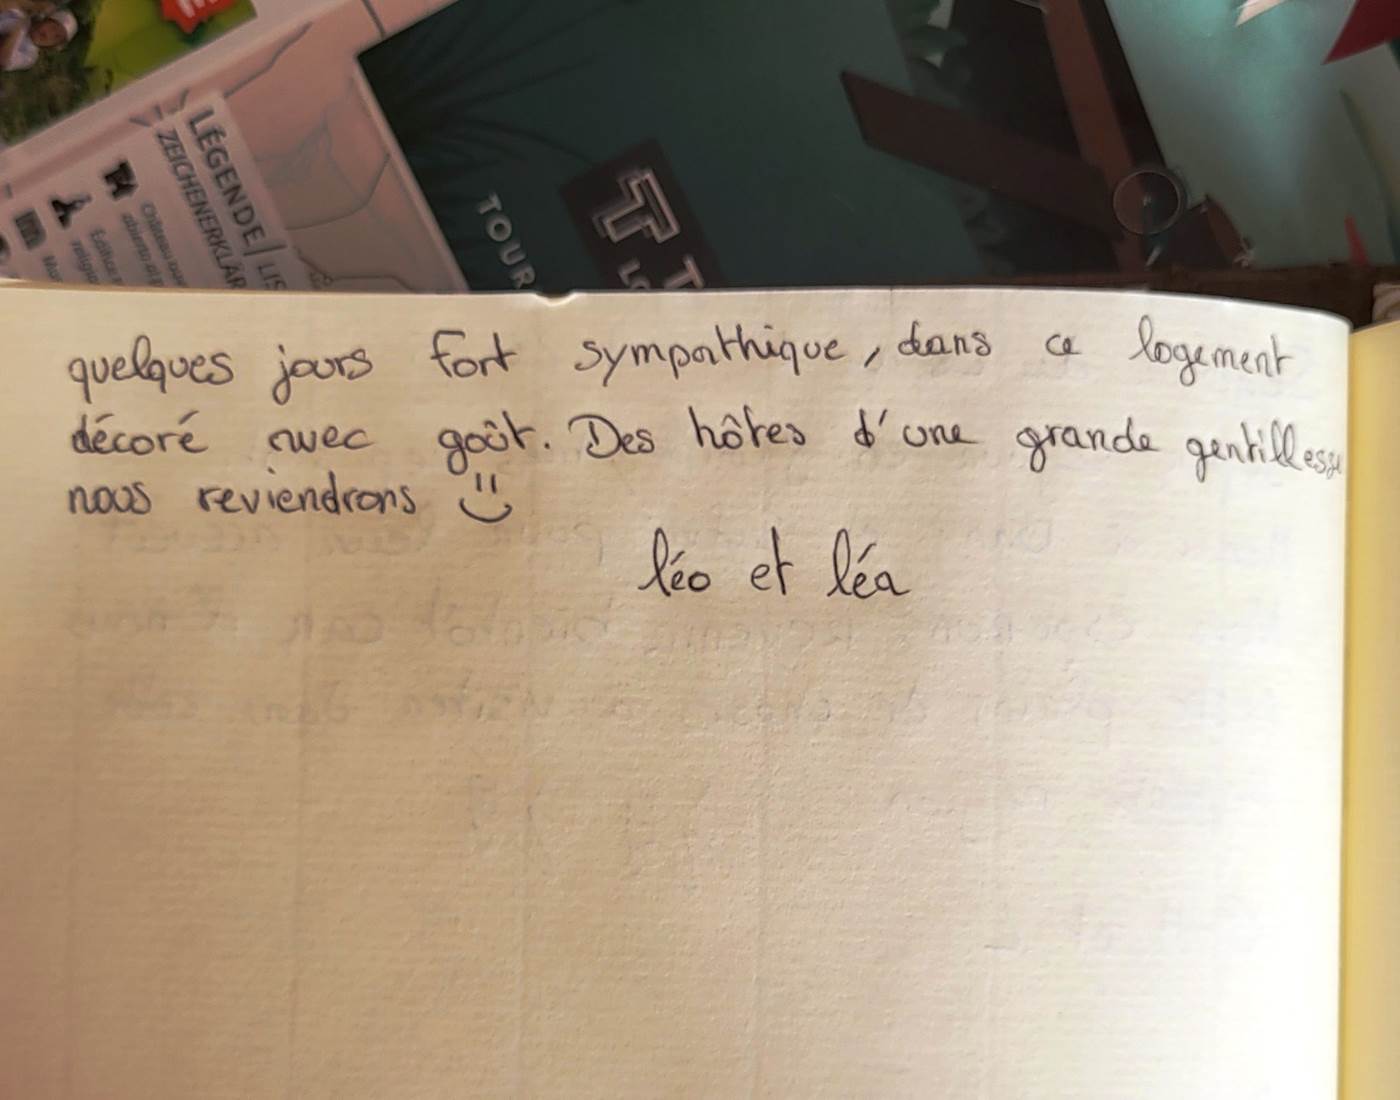 LÉGENDE/ LIS
ZEICHENERKLÄR
TOUR
quelques jours fort sympathique, dans ce logement
décoré avec goût. Des hôtes d'une grande gentillesse
nous reviendrons
léo et léa